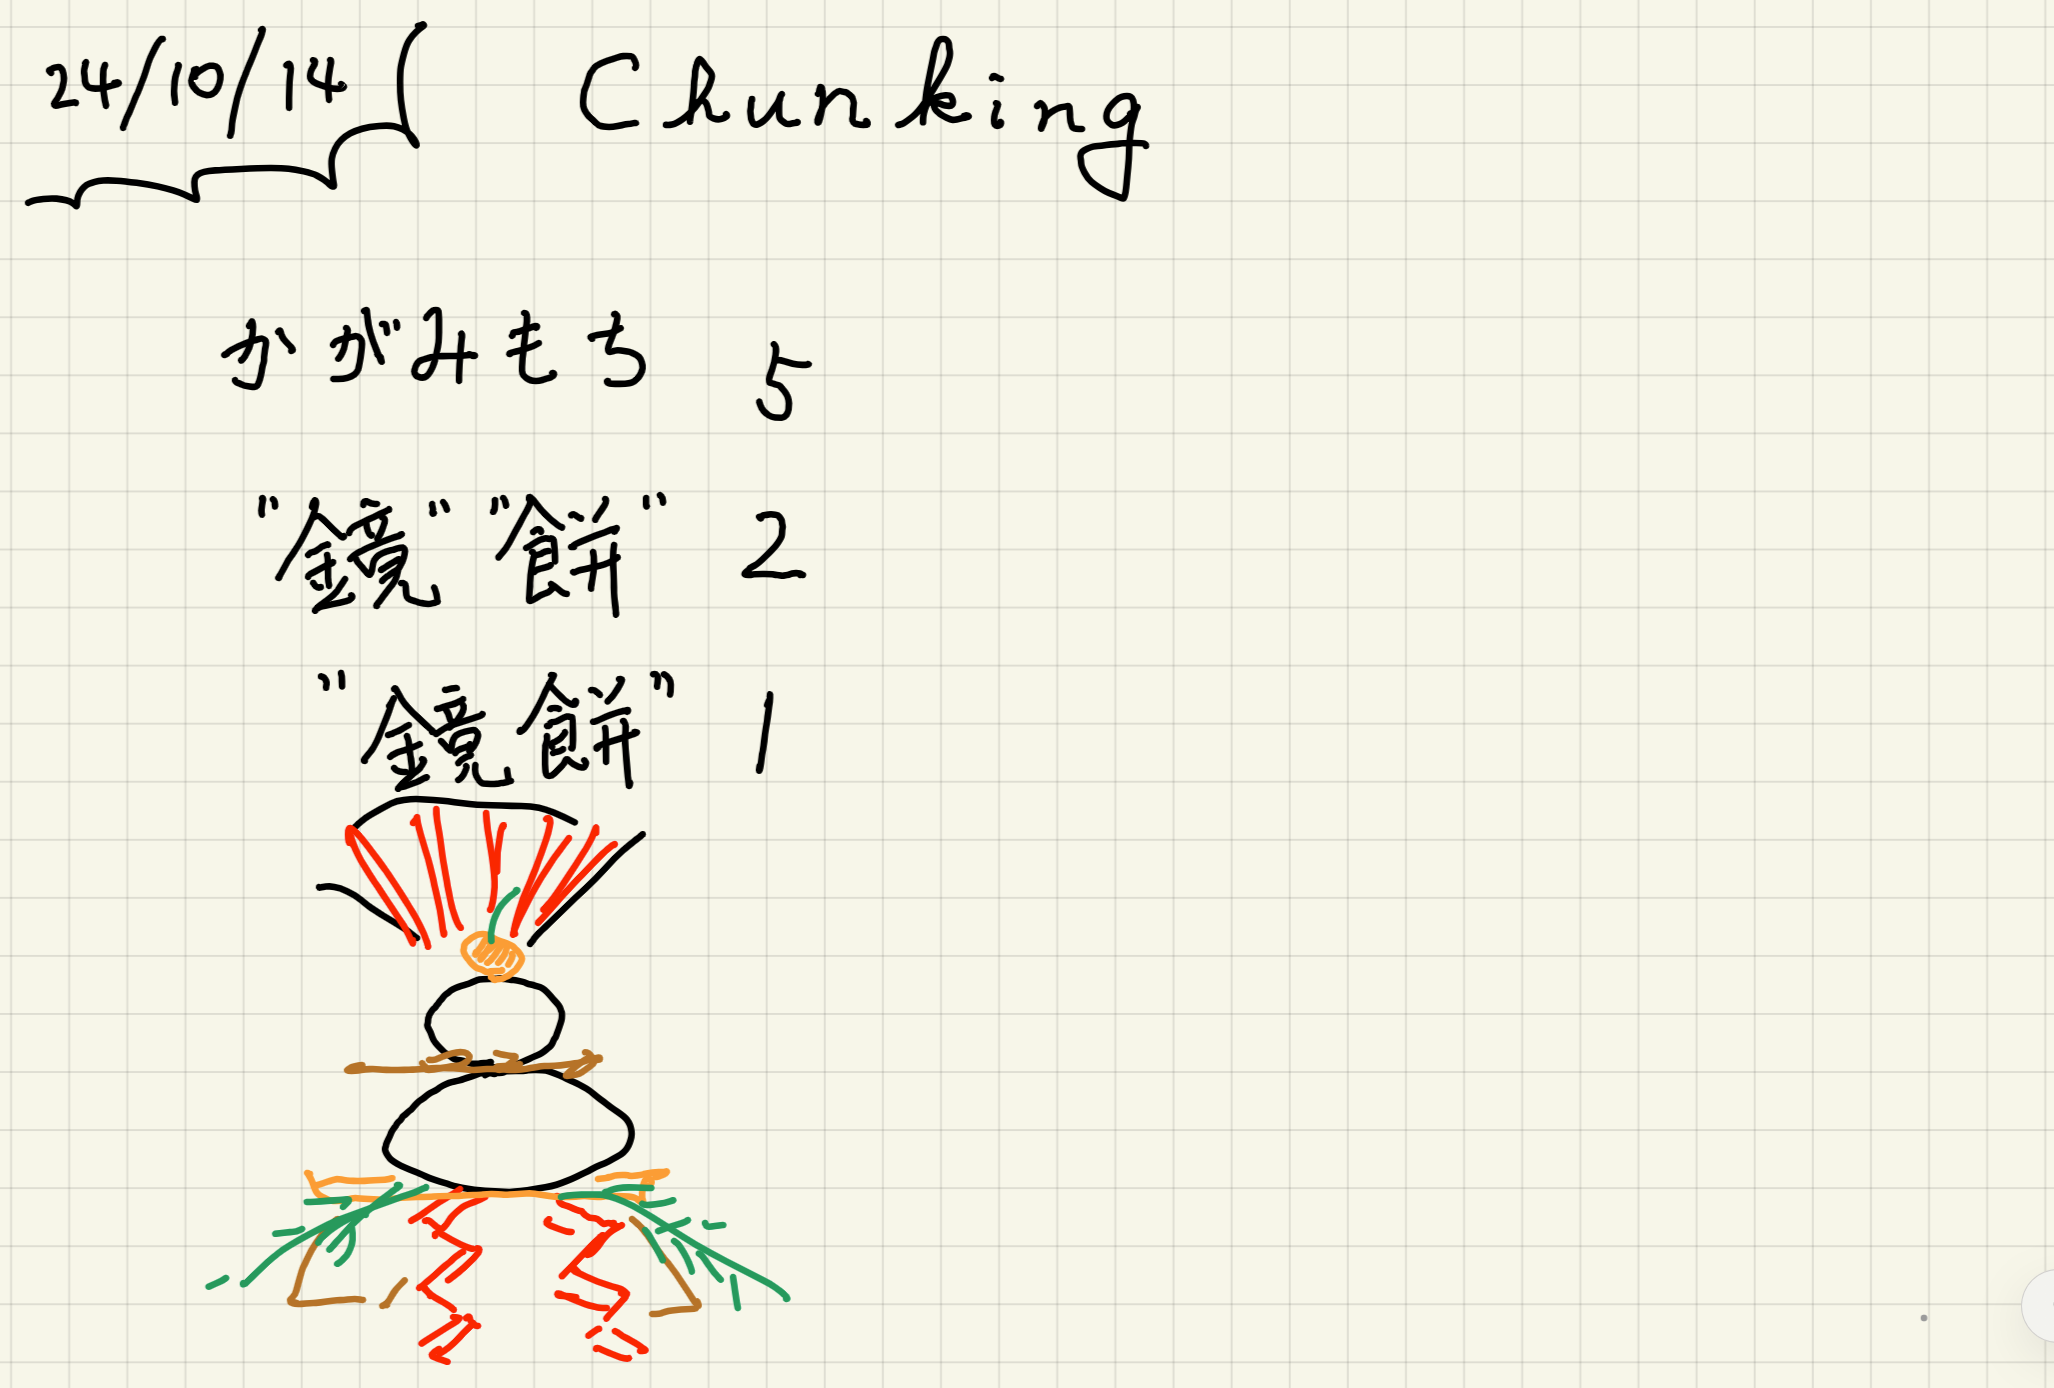 24/10/14 Chunking
かがみもち 5
"鏡" "餅" 2
"鏡餅" 1